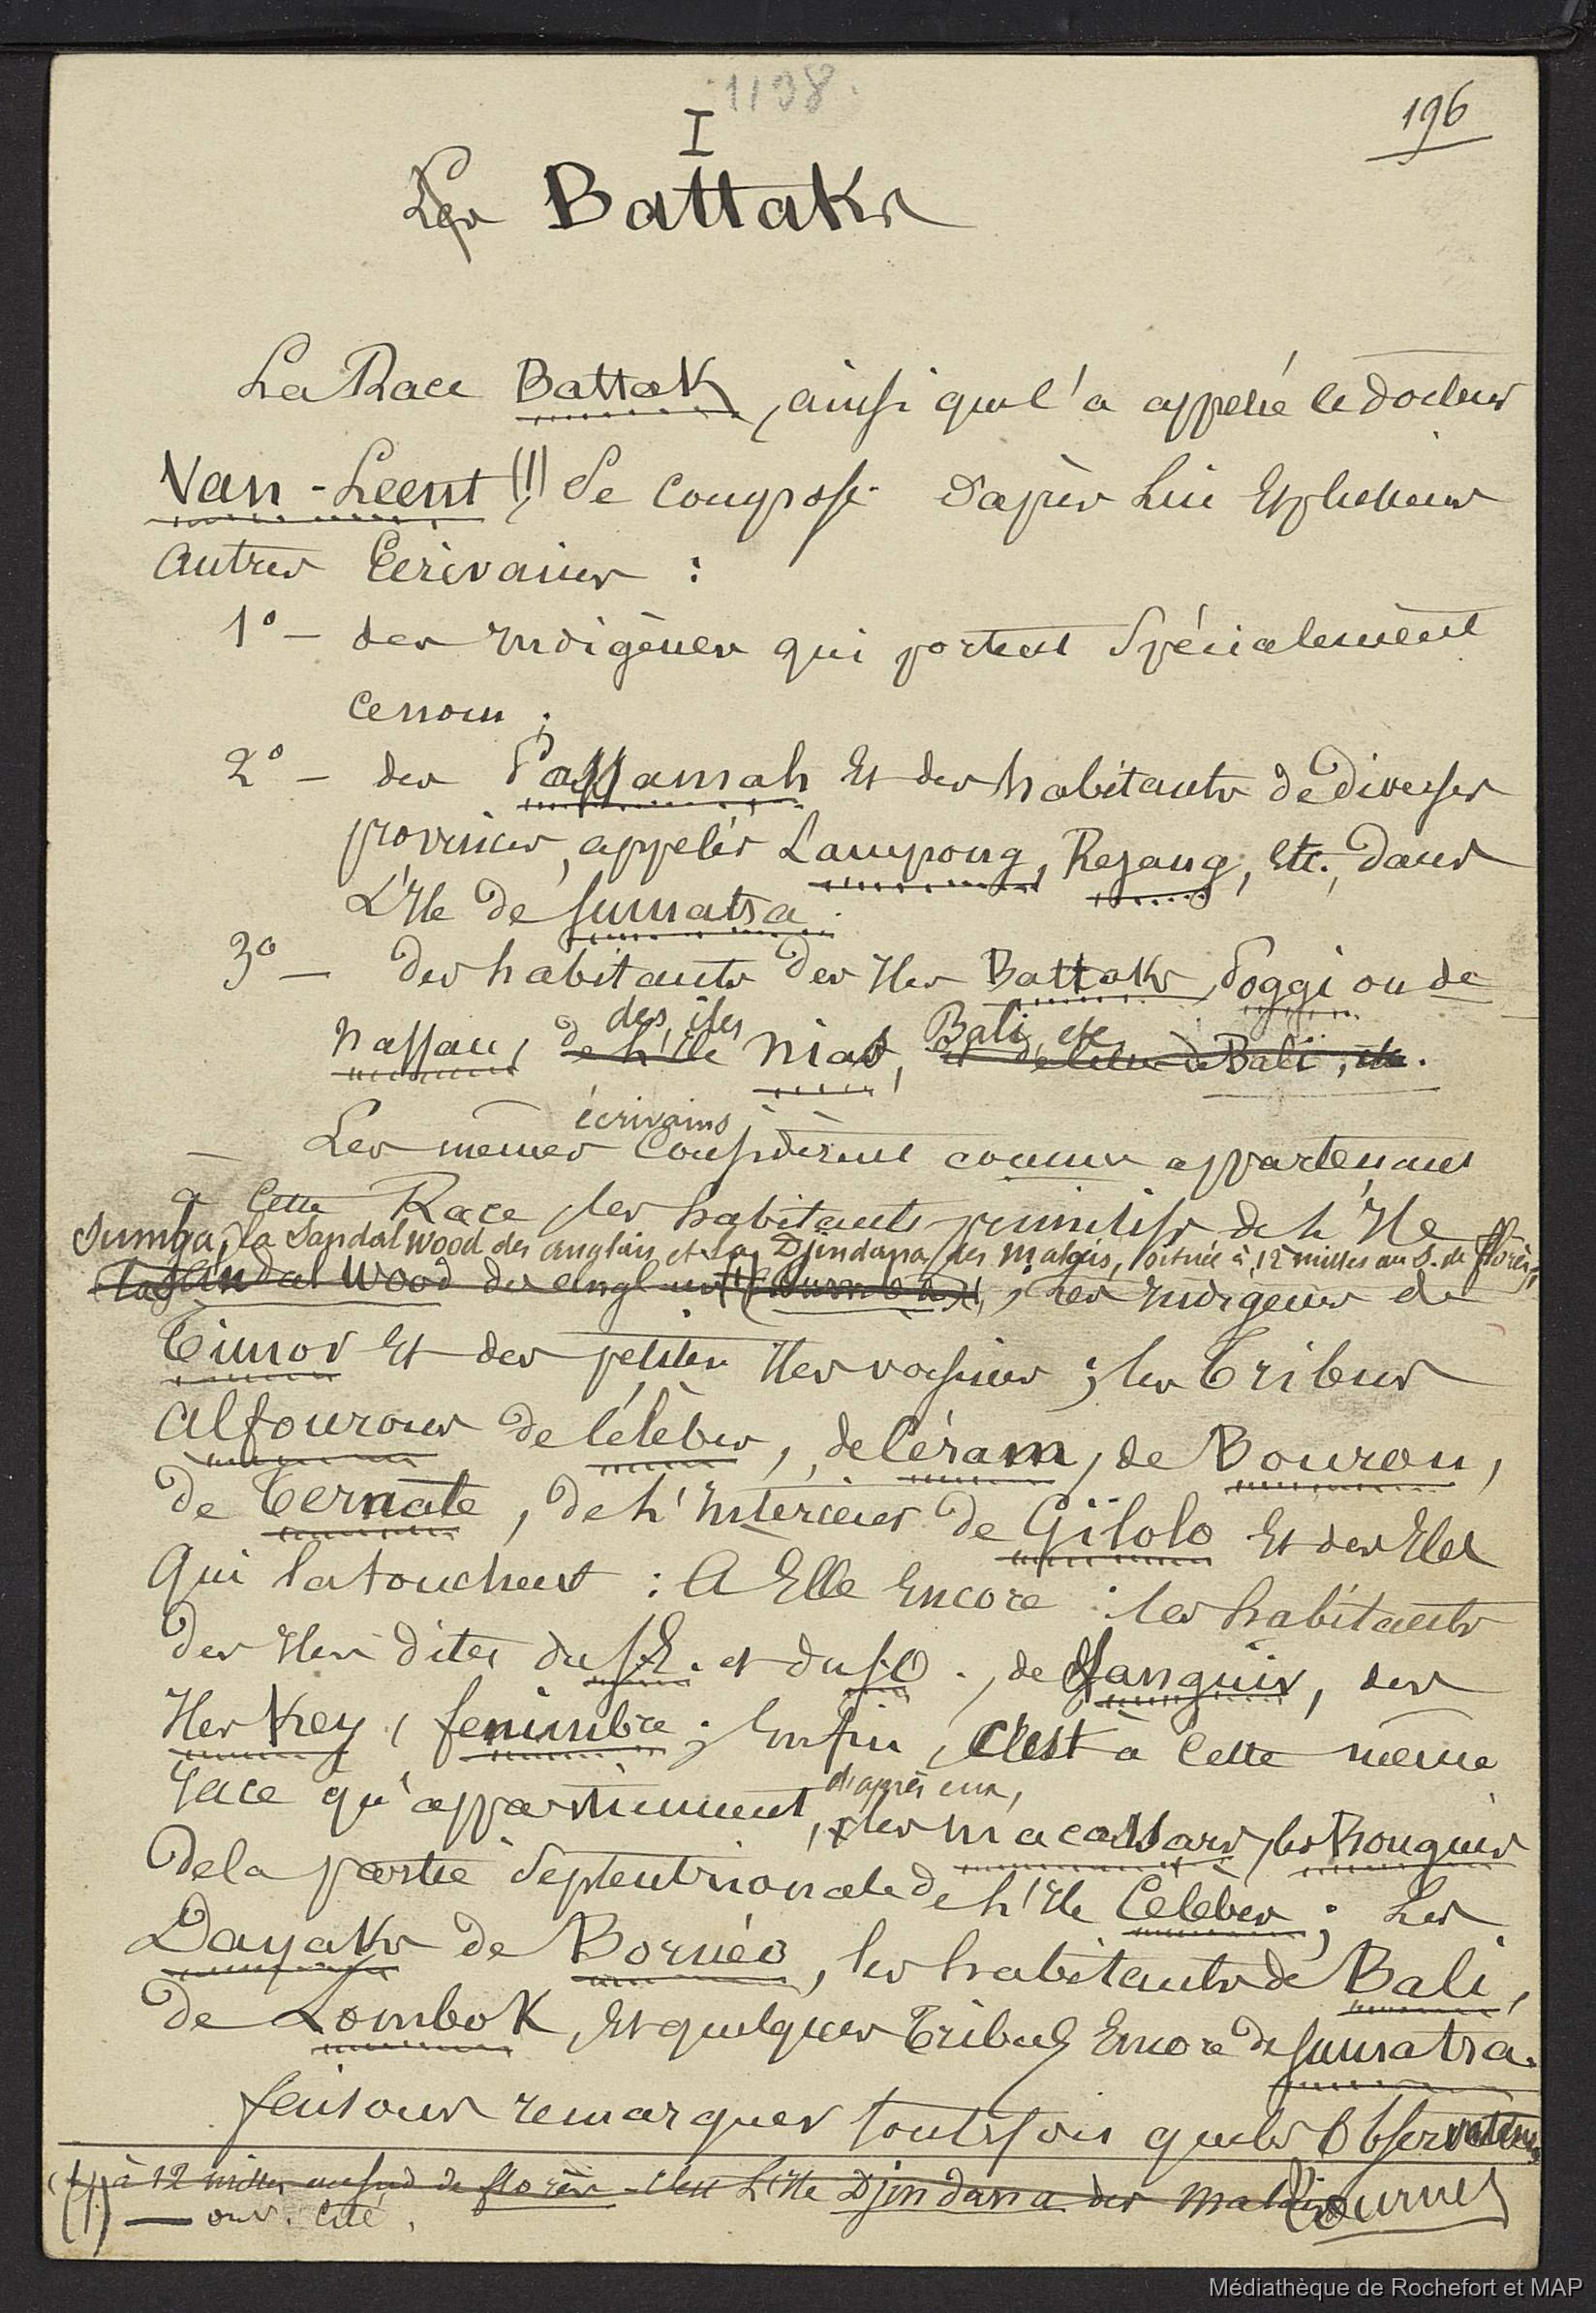 1198.
196
I
Les Battaks
La Race Battak, ainsi que l'a appelée le docteur
Van-Leent (1) se compose d'après lui et plusieurs
autres Ecrivains :
1° — des Indigènes qui portent spécialement
ce nom ;
2° — des Passamah et des habitants de diverses
provinces, appelés Lampong, Rejang, etc., dans
l'Ile de Sumatra.
3° — des habitants des Iles Battaks, Poggi ou de
des îles Bali, etc
Nassau, de l'Ile Nias, et de celle de Bali, etc.
écrivains
— Les mêmes considèrent comme appartenant
à cette Race, les habitants primitifs de l'Ile
Sumba, la Sandal Wood des anglais et la Djindana des Malais, située à 12 milles au S. de Florès,
la Sandal Wood des anglais (1) (Sumba), les Indigènes de
Timor et des petites Iles voisines ; les Tribus
Alfourous de Célèbes, de Céram, de Bourou,
de Ternate, de l'Intérieur de Gilolo et des Iles
qui la touchent : A Elle encore : les habitants
des Iles dites du S.E. et du S.O., de Sanguir, des
Iles Key, Tenimbre ; enfin, c'est à cette même
d'après eux,
race qu'appartiennent, les Macassars, les Bouguis
de la partie septentrionale de l'Ile Celèbes ; les
Dayaks de Bornéo, les habitants de Bali,
de Lombok, et quelques Tribus encore de Sumatra.
Faisons remarquer toutefois que les Observateurs
(1) à 12 milles au sud de florès - c'est L'Ile Djindana des Malais
(1) — ouv. cité.
Tournez
Médiathèque de Rochefort et MAP